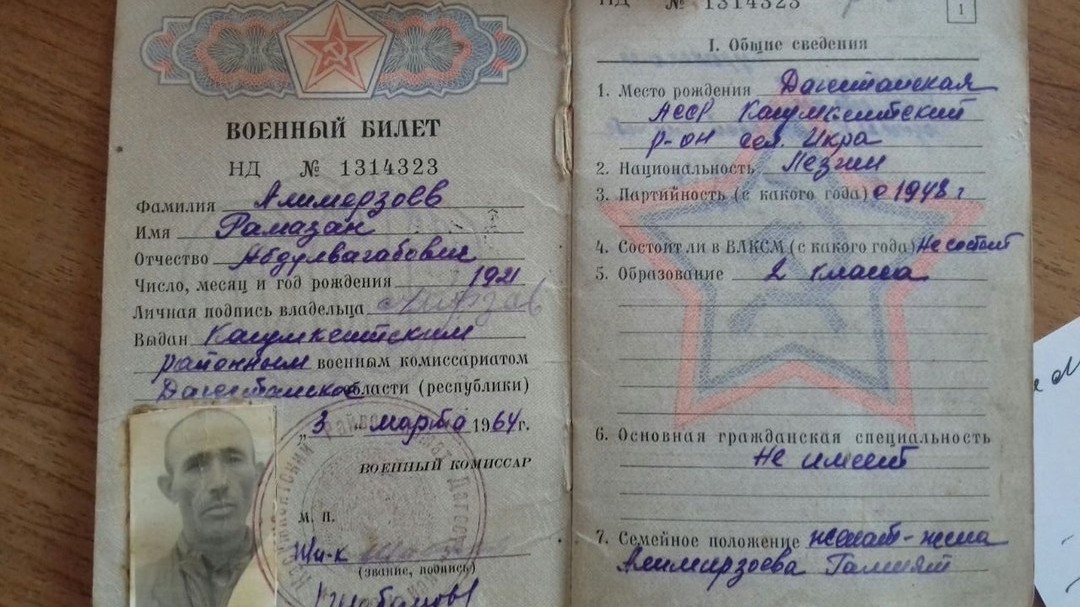 ВОЕННЫЙ БИЛЕТ
НД № 1314323
Фамилия Алимерзоев
Имя Рамазан
Отчество Абдулвагабович
Число, месяц и год рождения 1921
Личная подпись владельца
Выдан Касумкентским
районным военным комиссариатом
Дагестанской области (республики)
„3 " марта 1964 г.
ВОЕННЫЙ КОМИССАР
М. П.
(звание, подпись)
НД № 1314323
1
I. Общие сведения
1. Место рождения Дагестанская
АССР Касумкентский
р-он сел. Икра
2. Национальность Лезгин
3. Партийность (с какого года) с 1948 г
4. Состоит ли в ВЛКСМ (с какого года) Не состоит
5. Образование 2 класса
6. Основная гражданская специальность
Не имеет
7. Семейное положение женат - жена
Алимирзоева